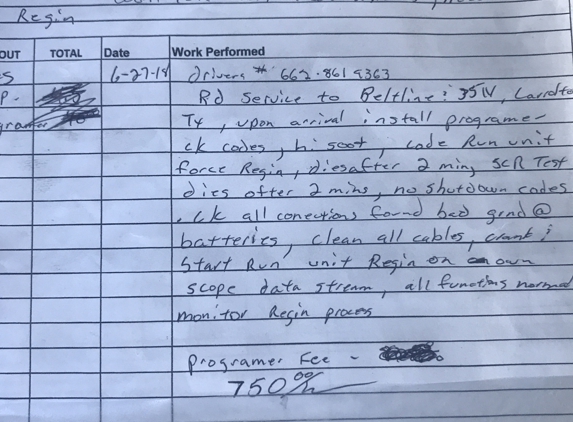 Regin
OUT TOTAL Date Work Performed
S 6-27-18 drivers # 662.861 9363
P- Rd Service to Beltline: 35W, Carrolto
gramer TX, upon arrival install programe-
ck codes, hi soot, code Run unit
force Regin, dies after 2 min, SCR Test
dies ofter 2 mins, no shutdown codes
. ck all conections found bad grnd @
batteries, clean all cables, crank i
Start Run unit Regin on own
scope data stream, all functins normal
monitor Regin proces
programer Fee -
750 00/